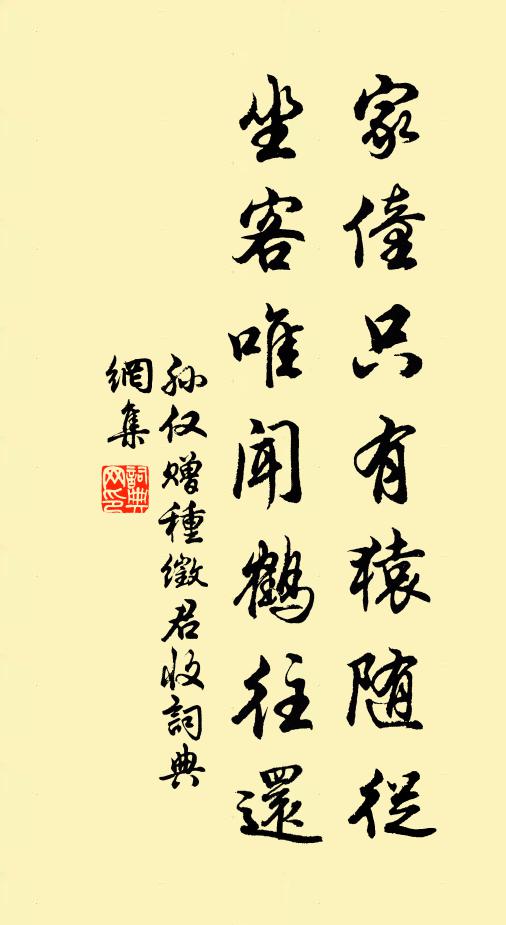 家僮只有猿随從
坐客唯闻鶴往還
孙仅赠種徵君收詞典
網集
詞典
网印